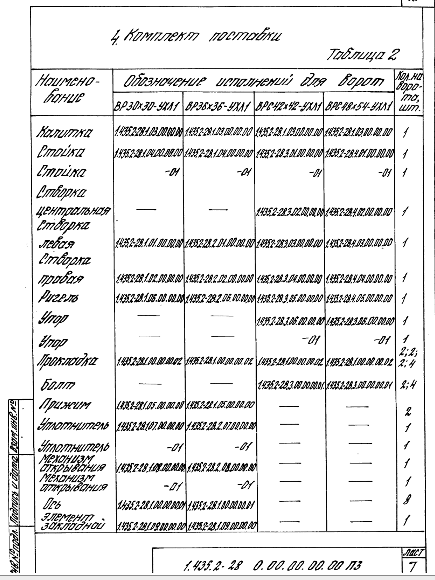 4. Комплект поставки
Таблица 2
Наимено-
вание
Обозначение исполнений для ворот
Кол. на
воро-
та,
шт.
ВР30×30-УХЛ1 ВР36×36-УХЛ1 ВРС42×42-УХЛ1 ВРС48×54-УХЛ1
Калитка 1.435.2-28.1.03.00.00.00 1.435.2-28.1.03.00.00.00 1.435.2-28.1.03.00.00.00 1.435.2-28.1.03.00.00.00 1
Стойка 1.435.2-28.1.04.00.00.00 1.435.2-28.1.04.00.00.00 1
Стойка -01 -01 -01 -01 1
Створка
центральная — — 1.435.2-28.3.02.00.00.00 1.435.2-28.4.02.00.00.00 1
Створка
левая 1.435.2-28.1.01.00.00.00 1.435.2-28.2.01.00.00.00 1.435.2-28.3.03.00.00.00 1.435.2-28.4.03.00.00.00 1
Створка
правая 1.435.2-28.1.02.00.00.00 1.435.2-28.2.02.00.00.00 1.435.2-28.3.04.00.00.00 1.435.2-28.4.04.00.00.00 1
Ригель 1.435.2-28.1.06.00.00.00 1.435.2-28.2.06.00.00.00 1
Упор — — 1.435.2-28.3.06.00.00.00 1.435.2-28.3.06.00.00.00 1
Упор — — -01 -01 1
Прокладка 1.435.2-28.1.00.00.00.02 1.435.2-28.1.00.00.00.02 1.435.2-28.1.00.00.00.02 1.435.2-28.1.00.00.00.02 2; 2;
2; 4
Болт — — 1.435.2-28.3.00.00.00.01 1.435.2-28.3.00.00.00.01 2; 4
Прижим 1.435.2-28.1.05.00.00.00 1.435.2-28.1.05.00.00.00 — — 2
Уплотнитель 1.435.2-28.1.07.00.00.00 1.435.2-28.2.07.00.00.00 — — 1
Уплотнитель -01 -01 — — 1
Механизм
открывания 1.435.2-28.1.08.00.00.00 1.435.2-28.2.08.00.00.00 — — 1
Механизм
открывания -01 -01 — — 1
Ось 1.435.2-28.1.00.00.00.01 1.435.2-28.1.00.00.00.01 — — 8
Элемент
закладной 1.435.2-28.1.09.00.00.00 1.435.2-28.1.09.00.00.00 — — 1
Подпись и дата Взам. инв. №
1.435.2-28 0.00.00.00.00 ПЗ
Лист
7